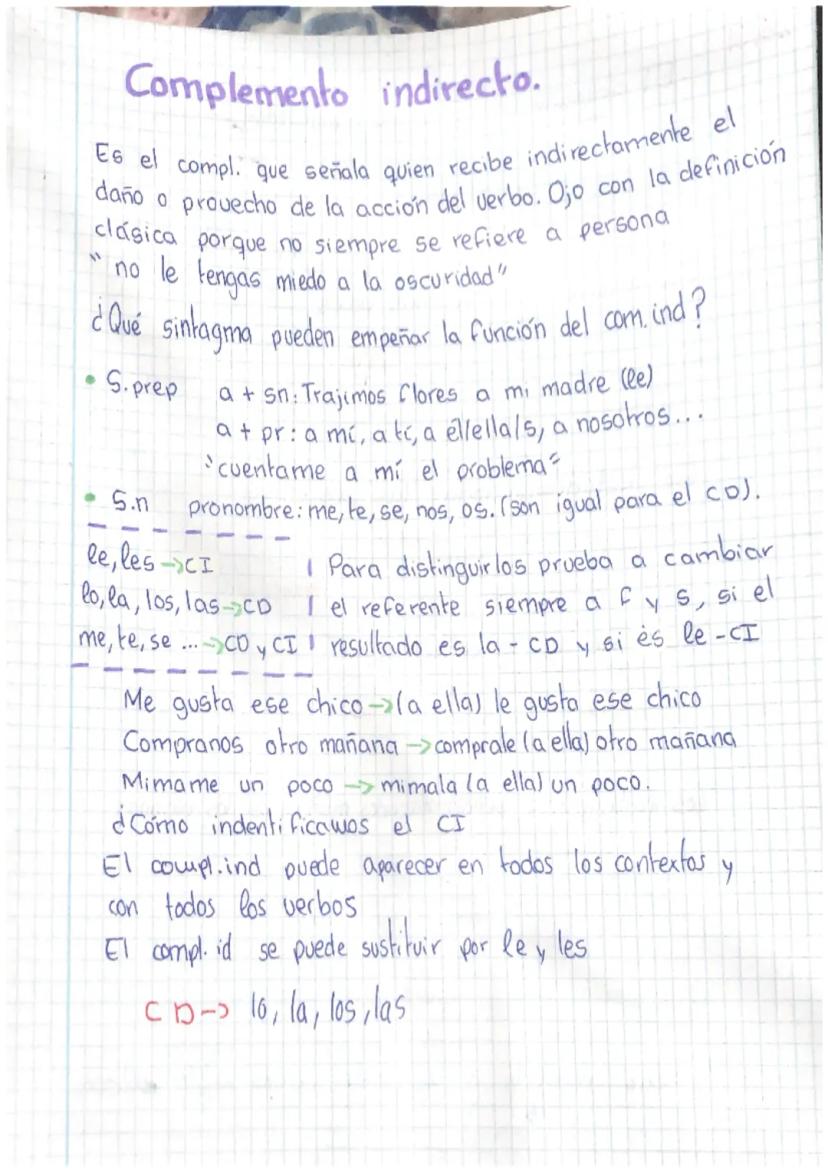 Complemento indirecto.
Es el compl. que señala quien recibe indirectamente el
daño o provecho de la acción del verbo. Ojo con la definición
clásica porque no siempre se refiere a persona
"no le tengas miedo a la oscuridad"
¿Qué sintagma pueden empeñar la función del com. ind?
• S.prep a + sn: Trajimos flores a mi madre (le)
a + pr: a mí, a ti, a él/ella/s, a nosotros...
"cuentame a mí el problema"
• S.n pronombre: me, te, se, nos, os. (son igual para el CD).
le, les → CI | Para distinguirlos prueba a cambiar
lo, la, los, las → CD | el referente siempre a f y s, si el
me, te, se ... → CD y CI | resultado es la - CD y si és le - CI
Me gusta ese chico → (a ella) le gusta ese chico
Compranos otro mañana → comprale (a ella) otro mañana
Mimame un poco → mimala (a ella) un poco.
¿Cómo indentificamos el CI
El compl. ind puede aparecer en todos los contextos y
con todos los verbos
El compl. id se puede sustituir por le y les
CD → lo, la, los, las